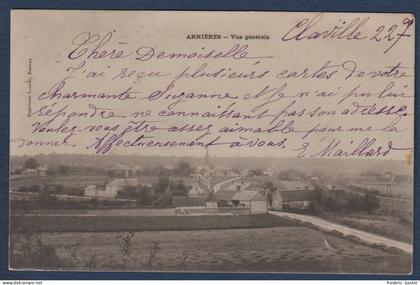 ARNIÈRES — Vue générale
Claville 22 7
Chère Demoiselle
J'ai reçu plusieurs cartes de votre
charmante Suzanne et je n'ai pu lui
répondre ne connaissant pas son adresse.
Voulez-vous être assez aimable pour me la
donner. Affectueusement à vous. E Maillard
frederic bastie